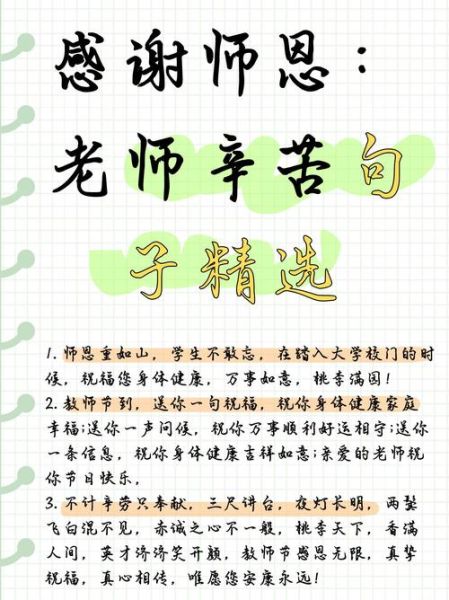 感谢师恩：
老师辛苦句
子精选
1. 师恩重如山，学生不敢忘，在踏入大学校门的时
候，祝福您身体健康，万事如意，桃李满园！
2. 教师节到，送你一句祝福，祝你身体健康家庭
幸福；送你一声问候，祝你万事顺利好运相守；送你
一条信息，祝你身体健康吉祥如意；亲爱的老师祝
你节日快乐。
3. 不计辛劳只奉献，三尺讲台，夜灯长明，两鬓
飞白混不见，赤诚之心不一般，桃李天下，香满
人间，英才济济笑开颜，教师节感恩无限，真挚
祝福，真心相传，唯愿您安康永远！